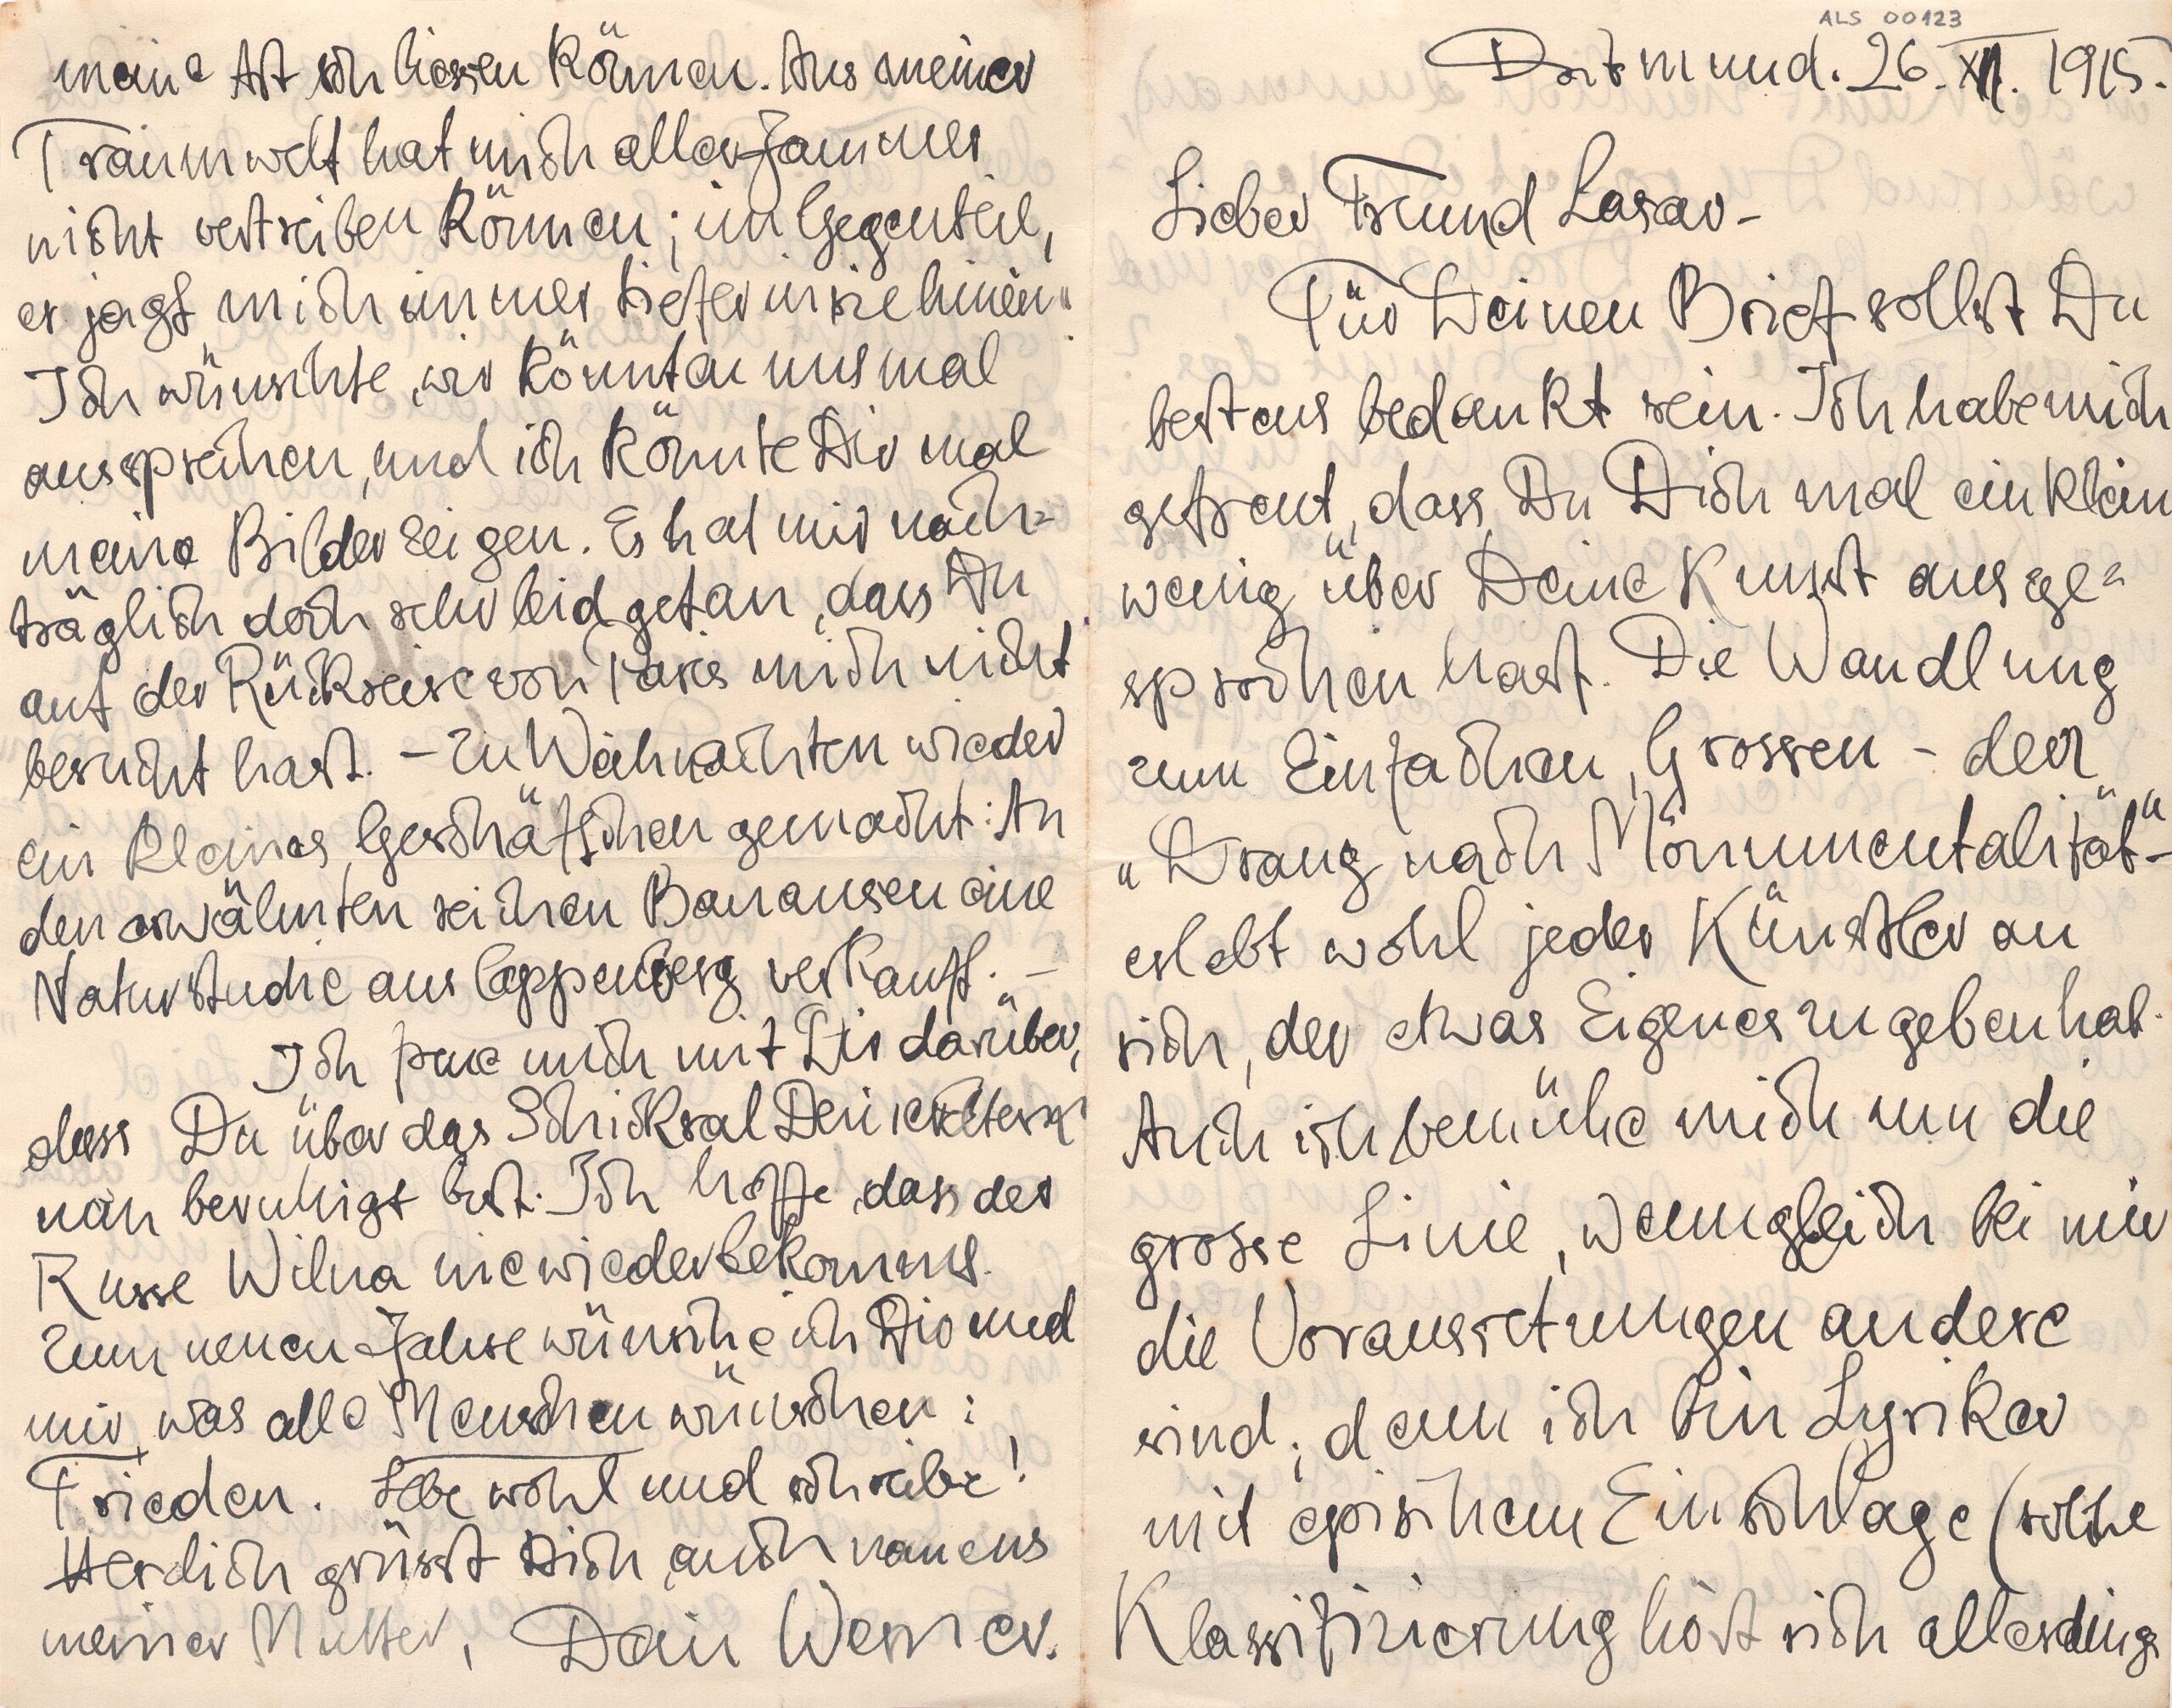 ALS 00123
Dortmund. 26. XII. 1915.
Lieber Freund Lasar –
Für Deinen Brief sollst Du
bestens bedankt sein. Ich habe mich
gefreut, dass Du Dich mal ein klein
wenig über Deine Kunst ausge=
sprochen hast. Die Wandlung
zum Einfachen, Grossen – der
„Drang nach Monumentalität“ –
erlebt wohl jeder Künstler an
sich, der etwas Eigenes zu geben hat.
Auch ich bemühe mich um die
grosse Linie, wenngleich bei mir
die Voraussetzungen andere
sind; denn ich bin Lyriker
mit epischem Einschlage (solche
Klassifizierung hört sich allerdings
meine Art schliessen können. Aus meiner
Traumwelt hat mich aller Jammer
nicht vertreiben können; im Gegenteil,
er jagt mich immer tiefer in sie hinein.
Ich wünschte, wir könnten uns mal
aussprechen, und ich könnte Dir mal
meine Bilder zeigen. Es hat mir nach=
träglich doch sehr leid getan, dass Du
auf der Rückreise von Paris mich nicht
besucht hast. – Zu Weihnachten wieder
ein kleines Geschäftchen gemacht: An
den erwähnten reichen Banausen eine
Naturstudie aus Cappenberg verkauft. –
Ich freue mich mit Dir darüber,
dass Du über das Schicksal Deiner Eltern
nun beruhigt bist. Ich hoffe, dass der
Russe Wilna nie wiederbekommt.
Zum neuen Jahre wünsche ich Dir und
mir, was alle Menschen wünschen:
Frieden. Lebe wohl und schreibe!
Herzlich grüsst Dich, auch namens
meiner Mutter, Dein Werner.